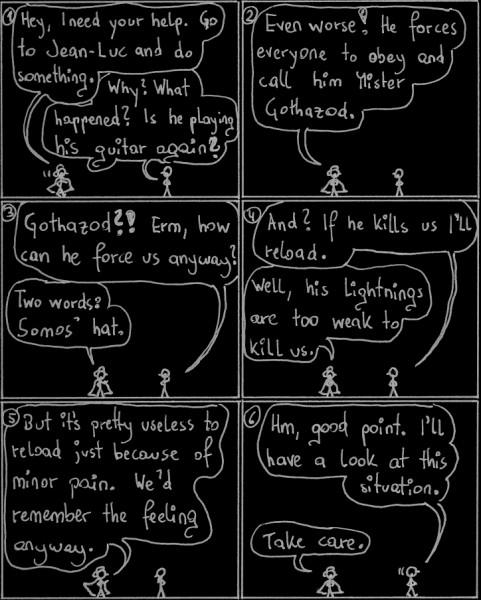 1
Hey, I need your help. Go
to Jean-Luc and do
something.
Why? What
happened? Is he playing
his guitar again?
2
Even worse! He forces
everyone to obey and
call him Mister
Gothazod.
3
Gothazod?! Erm, how
can he force us anyway?
Two words:
Somos' hat.
4
And? If he kills us I'll
reload.
Well, his Lightnings
are too weak to
kill us.
5
But it's pretty useless to
reload just because of
minor pain. We'd
remember the feeling
anyway.
6
Hm, good point. I'll
have a look at this
situation.
Take care.